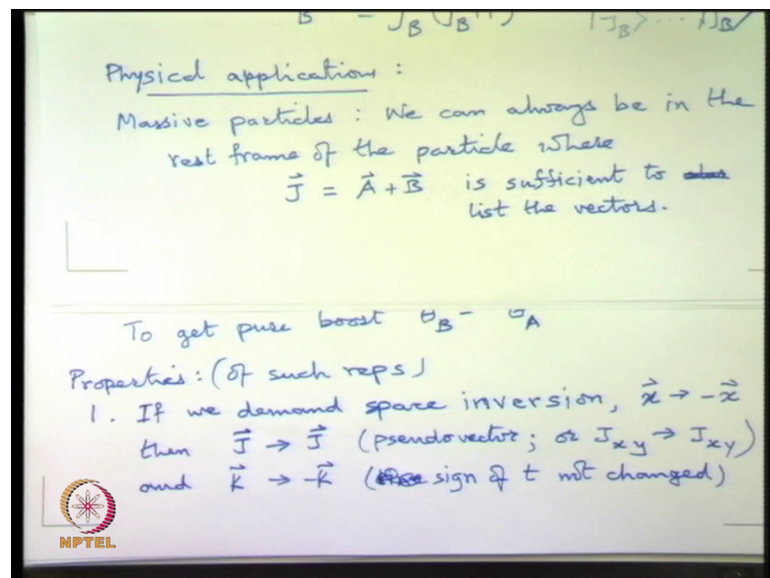 Physical applications :
Massive particles : We can always be in the
rest frame of the particle where
J⃗ = A⃗ + B⃗ is sufficient to
list the vectors.
To get pure boost θ_B = - θ_A
Properties : (of such reps)
1. If we demand space inversion, x⃗ → -x⃗
then J⃗ → J⃗ (pseudovector; or J_xy → J_xy)
and K⃗ → -K⃗ (sign of t not changed)
NPTEL